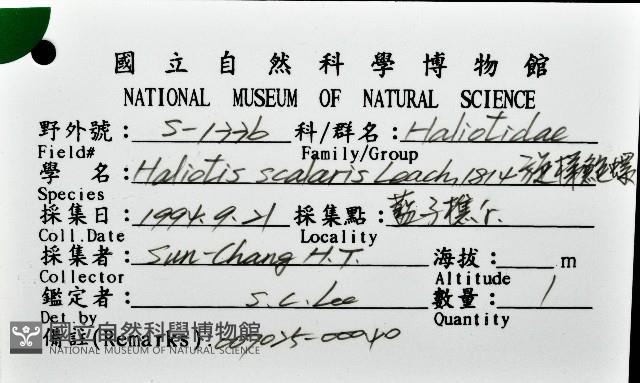 國立自然科學博物館
NATIONAL MUSEUM OF NATURAL SCIENCE
野外號： S-1776 科/群名： Haliotidae
Field# Family/Group
學 名： Haliotis scalaris Leach, 1814 旋梯鮑螺
Species
採集日： 1994.9.21 採集點： 藍子樵'r.
Coll.Date Locality
採集者： Sun-Chang H.T. 海拔： m
Collector Altitude
鑑定者： S.C. Lee 數量： 1
Det.by Quantity
備註(Remarks): 007025-00040
國立自然科學博物館
NATIONAL MUSEUM OF NATURAL SCIENCE